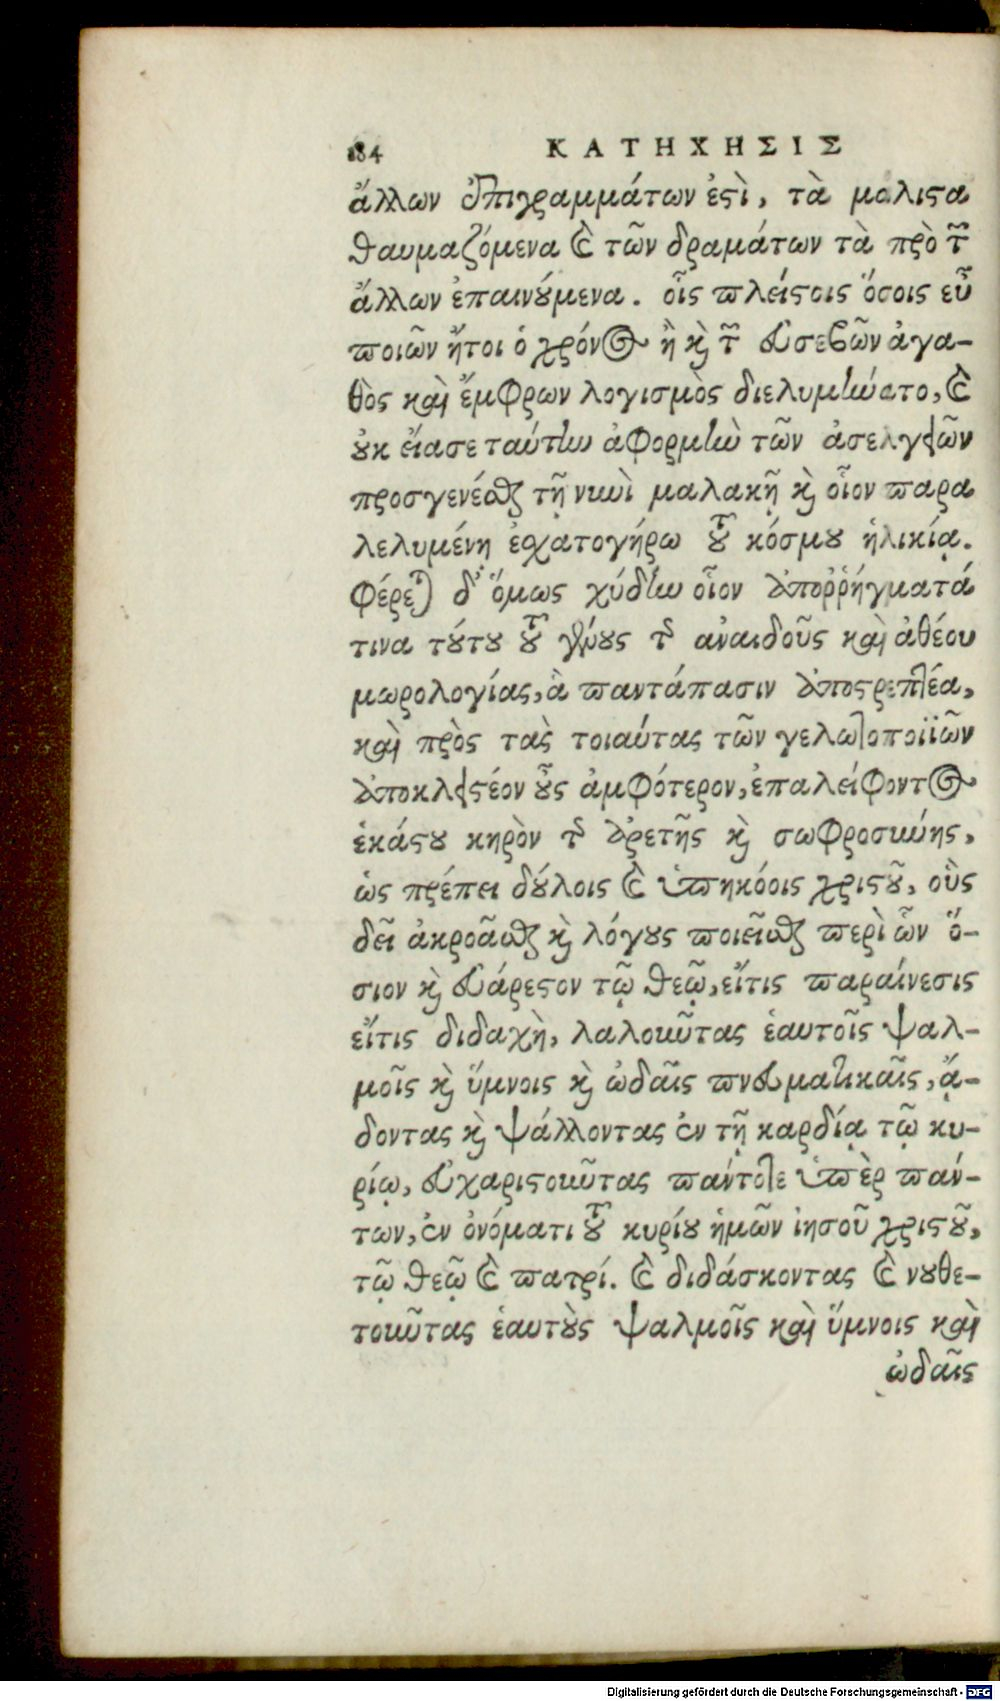 184 ΚΑΤΗΧΗΣΙΣ
ἄλλων ἐπιγραμμάτων ἐςὶ, τὰ μαλιςα
θαυμαζόμενα καὶ τῶν δραμάτων τὰ πρὸ τῶν
ἄλλων ἐπαινούμενα. οἷς πλείςοις ὅσοις εὖ
ποιῶν ἤτοι ὁ χρόνος ἢ καὶ τῶν εὐσεβῶν ἀγα-
θὸς καὶ ἔμφρων λογισμὸς διελυμήνατο, καὶ
οὐκ εἴασε ταύτην ἀφορμὴν τῶν ἀσελγειῶν
προσγενέσθαι τῇ νυνὶ μαλακῇ καὶ οἷον παρα
λελυμένῃ ἐσχατογήρῳ τοῦ κόσμου ἡλικίᾳ.
Φέρεται δ' ὅμως χύδην οἷον ἀποῤῥήγματά
τινα τούτου τοῦ γένους τῆς ἀναιδοῦς καὶ ἀθέου
μωρολογίας, ἃ παντάπασιν ἀποςρεπτέα,
καὶ πρὸς τὰς τοιαύτας τῶν γελωτοποιϊῶν
ἀποκλειςέον οὖς ἀμφότερον, ἐπαλείφοντος
ἑκάςου κηρὸν τῆς ἀρετῆς καὶ σωφροσύνης,
ὡς πρέπει δούλοις καὶ ὑπηκόοις χριςοῦ, οὓς
δεῖ ἀκροᾶσθαι καὶ λόγους ποιεῖσθαι περὶ ὧν ὅ-
σιον καὶ εὐάρεςον τῷ θεῷ, εἴτις παραίνεσις
εἴτις διδαχὴ, λαλοῦντας ἑαυτοῖς ψαλ-
μοῖς καὶ ὕμνοις καὶ ᾠδαῖς πνευματικαῖς, ᾄ-
δοντας καὶ ψάλλοντας ἐν τῇ καρδίᾳ τῷ κυ-
ρίῳ, εὐχαριςοῦντας πάντοτε ὑπὲρ πάν-
των, ἐν ὀνόματι τοῦ κυρίου ἡμῶν ἰησοῦ χριςοῦ,
τῷ θεῷ καὶ πατρί. καὶ διδάσκοντας καὶ νουθε-
τοῦντας ἑαυτοὺς ψαλμοῖς καὶ ὕμνοις καὶ
ᾠδαῖς
Digitalisierung gefördert durch die Deutsche Forschungsgemeinschaft - DFG